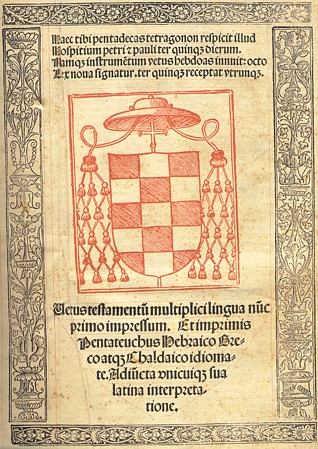 Haec tibi pentadecas tetragonon respicit illud
Hospitium petri ⁊ pauli ter quinqꝫ dierum.
Namqꝫ instrumētum vetus hebdoas innuit: octo
Lex noua signatur. ter quinqꝫ receptat vtrunqꝫ.
Vetus testamentū multiplici lingua nūc
primo impressum. Et imprimis
Pentateuchus Hebraico Gre-
co atqꝫ Chaldaico idioma-
te. Adiūcta vnicuiqꝫ sua
latina interpreta-
tione.